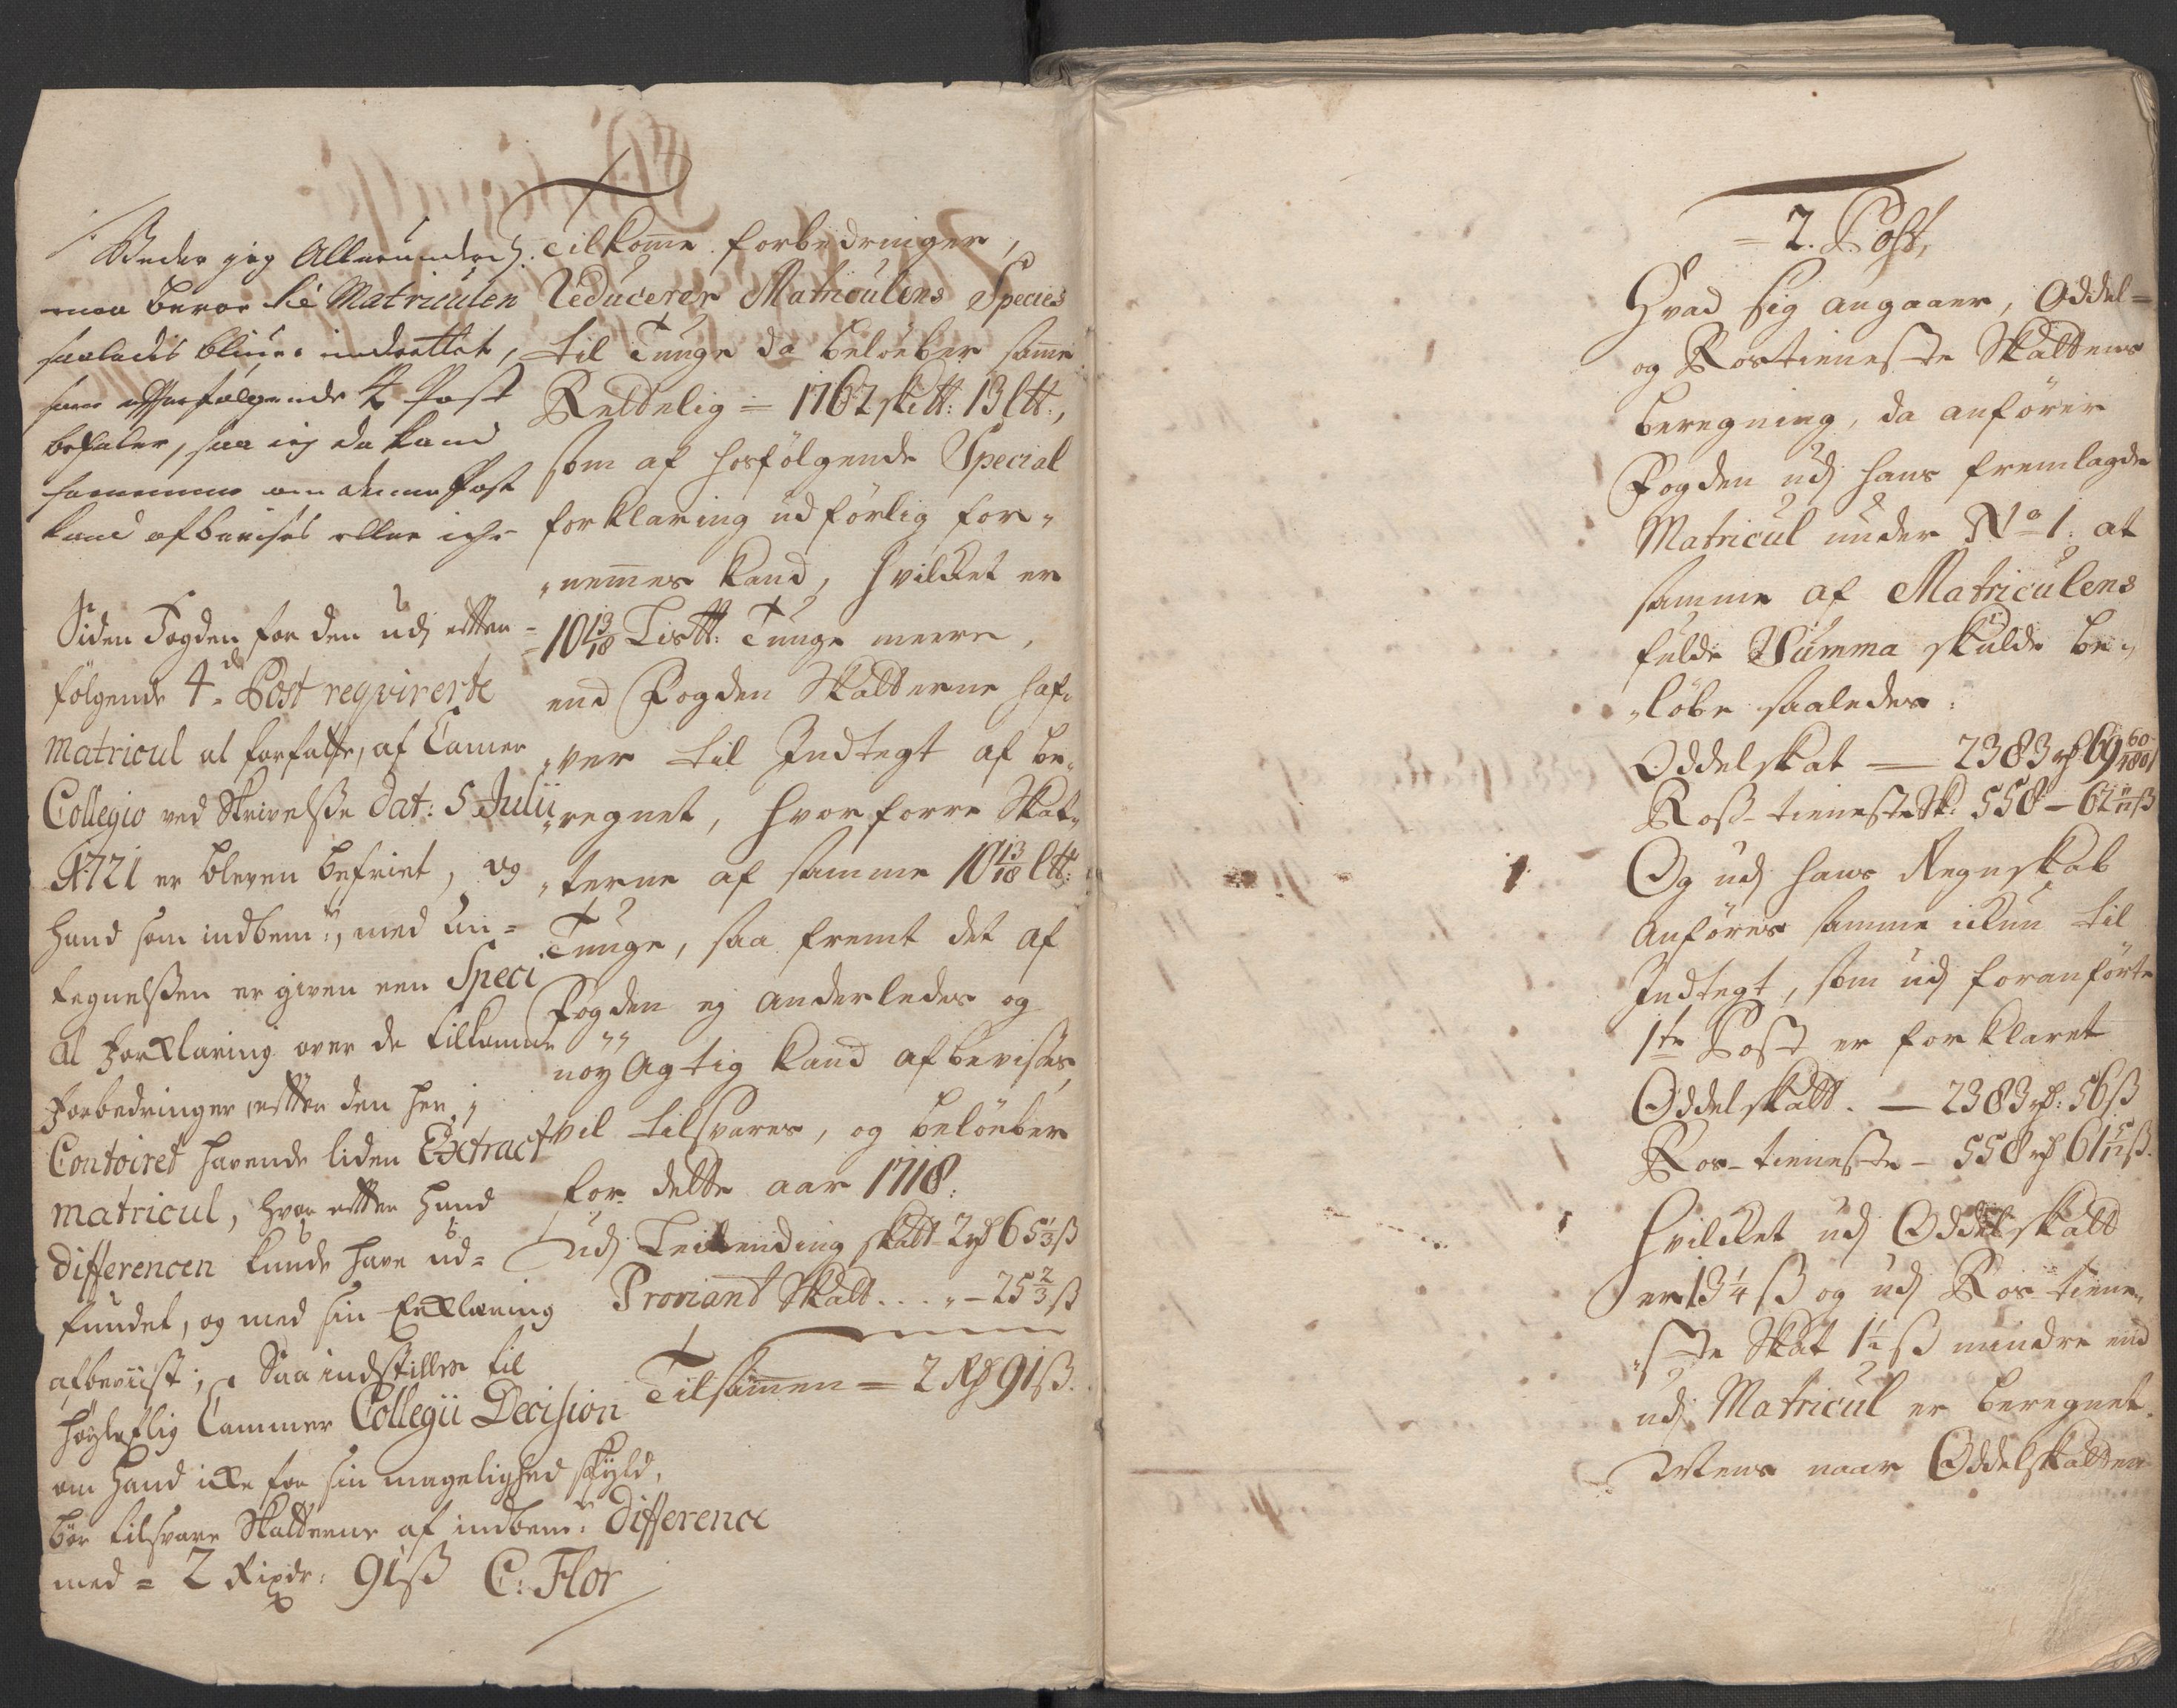 Beder jeg Allerunder.
maa bevor ke Matriculen
saaledis bliver indrettet,
som efterfølgende 4 Post
befaler, saa ieg da kand
fornemme om denne Post
kand afbevises eller iche
Siden Fogden for den udj etter=
følgende 4de Post reqvirerte
Matricul at forfatte, af Camer
Collegio ved Skrivelse dat: 5 Julij
A 1721 er bleven befriet, og
hand som indbem:te, med An=
tegnelsen er given een Speci
al Forklaring over de tilkomne
Forbedringer, etter den her i
Contoiret havende liden Extract
matricul, hvor etter hand
differencen kunde have ud=
fundet, og med sin Erklæring
afbeviist; Saa indstilles til
høylovlig Cammer Collegii Decision
om hand icke for sin magelighed skyld,
bør tilsvare Skatterne af indbem:te Difference
med = 2 Rixdr: 91 ß C: Flor
Tilkomne forbedringer,
Reducerer Matriculens Species
til Tunge da beløeber samme
Rettelig = 1762 skt: 13 ltt.,
som af hosfølgende Special
forklaring udførlig for„
„nemmes kand, hvilket er
10 13/18 Listt: Tunge meere,
end Fogden Skatterne haf„
„ver til Indtegt af be„
„regnet, hvorforre Skat„
„terne af samme 10 13/18 ltt:
Tunge, saa fremt det af
Fogden ej anderledes og
nøyagtig kand afbevises,
vil tilsvares, og beløeber
for dette aar 1718:
udj Leilending skatt - 2 rd 65 1/3 ß
Proviant Skatt . . . „ - 25 2/3 ß
Tilsammen = 2 Rd 91 ß.
= 2. Post,
Hvad sig angaaer, Oddel=
og Rostieneste Skattens
beregning, da anfører
Fogden udj hans fremlagde
Matricul under No 1. at
samme af Matriculens
fulde Summa skulde be„
„løbe saaledes:
Oddelskat — 2383 rd 69 60/180 ß
Ros-tieneste Sk: 558 - 62 11/12 ß
Og udj hans Regnskab
anføres samme ickun til
Indtegt, som udj foranførte
1te Post er forklaret
Oddelskatt. — 2383 rd: 56 ß
Ros-tieneste - 558 rd 61 5/12 ß.
Hvilket udj Oddelskatt
er 13 1/4 ß og udj Ros tiene„
„ste Skat 1 1/2 ß mindre end
udj Matricul er beregnet.
Mens naar Oddelskatten